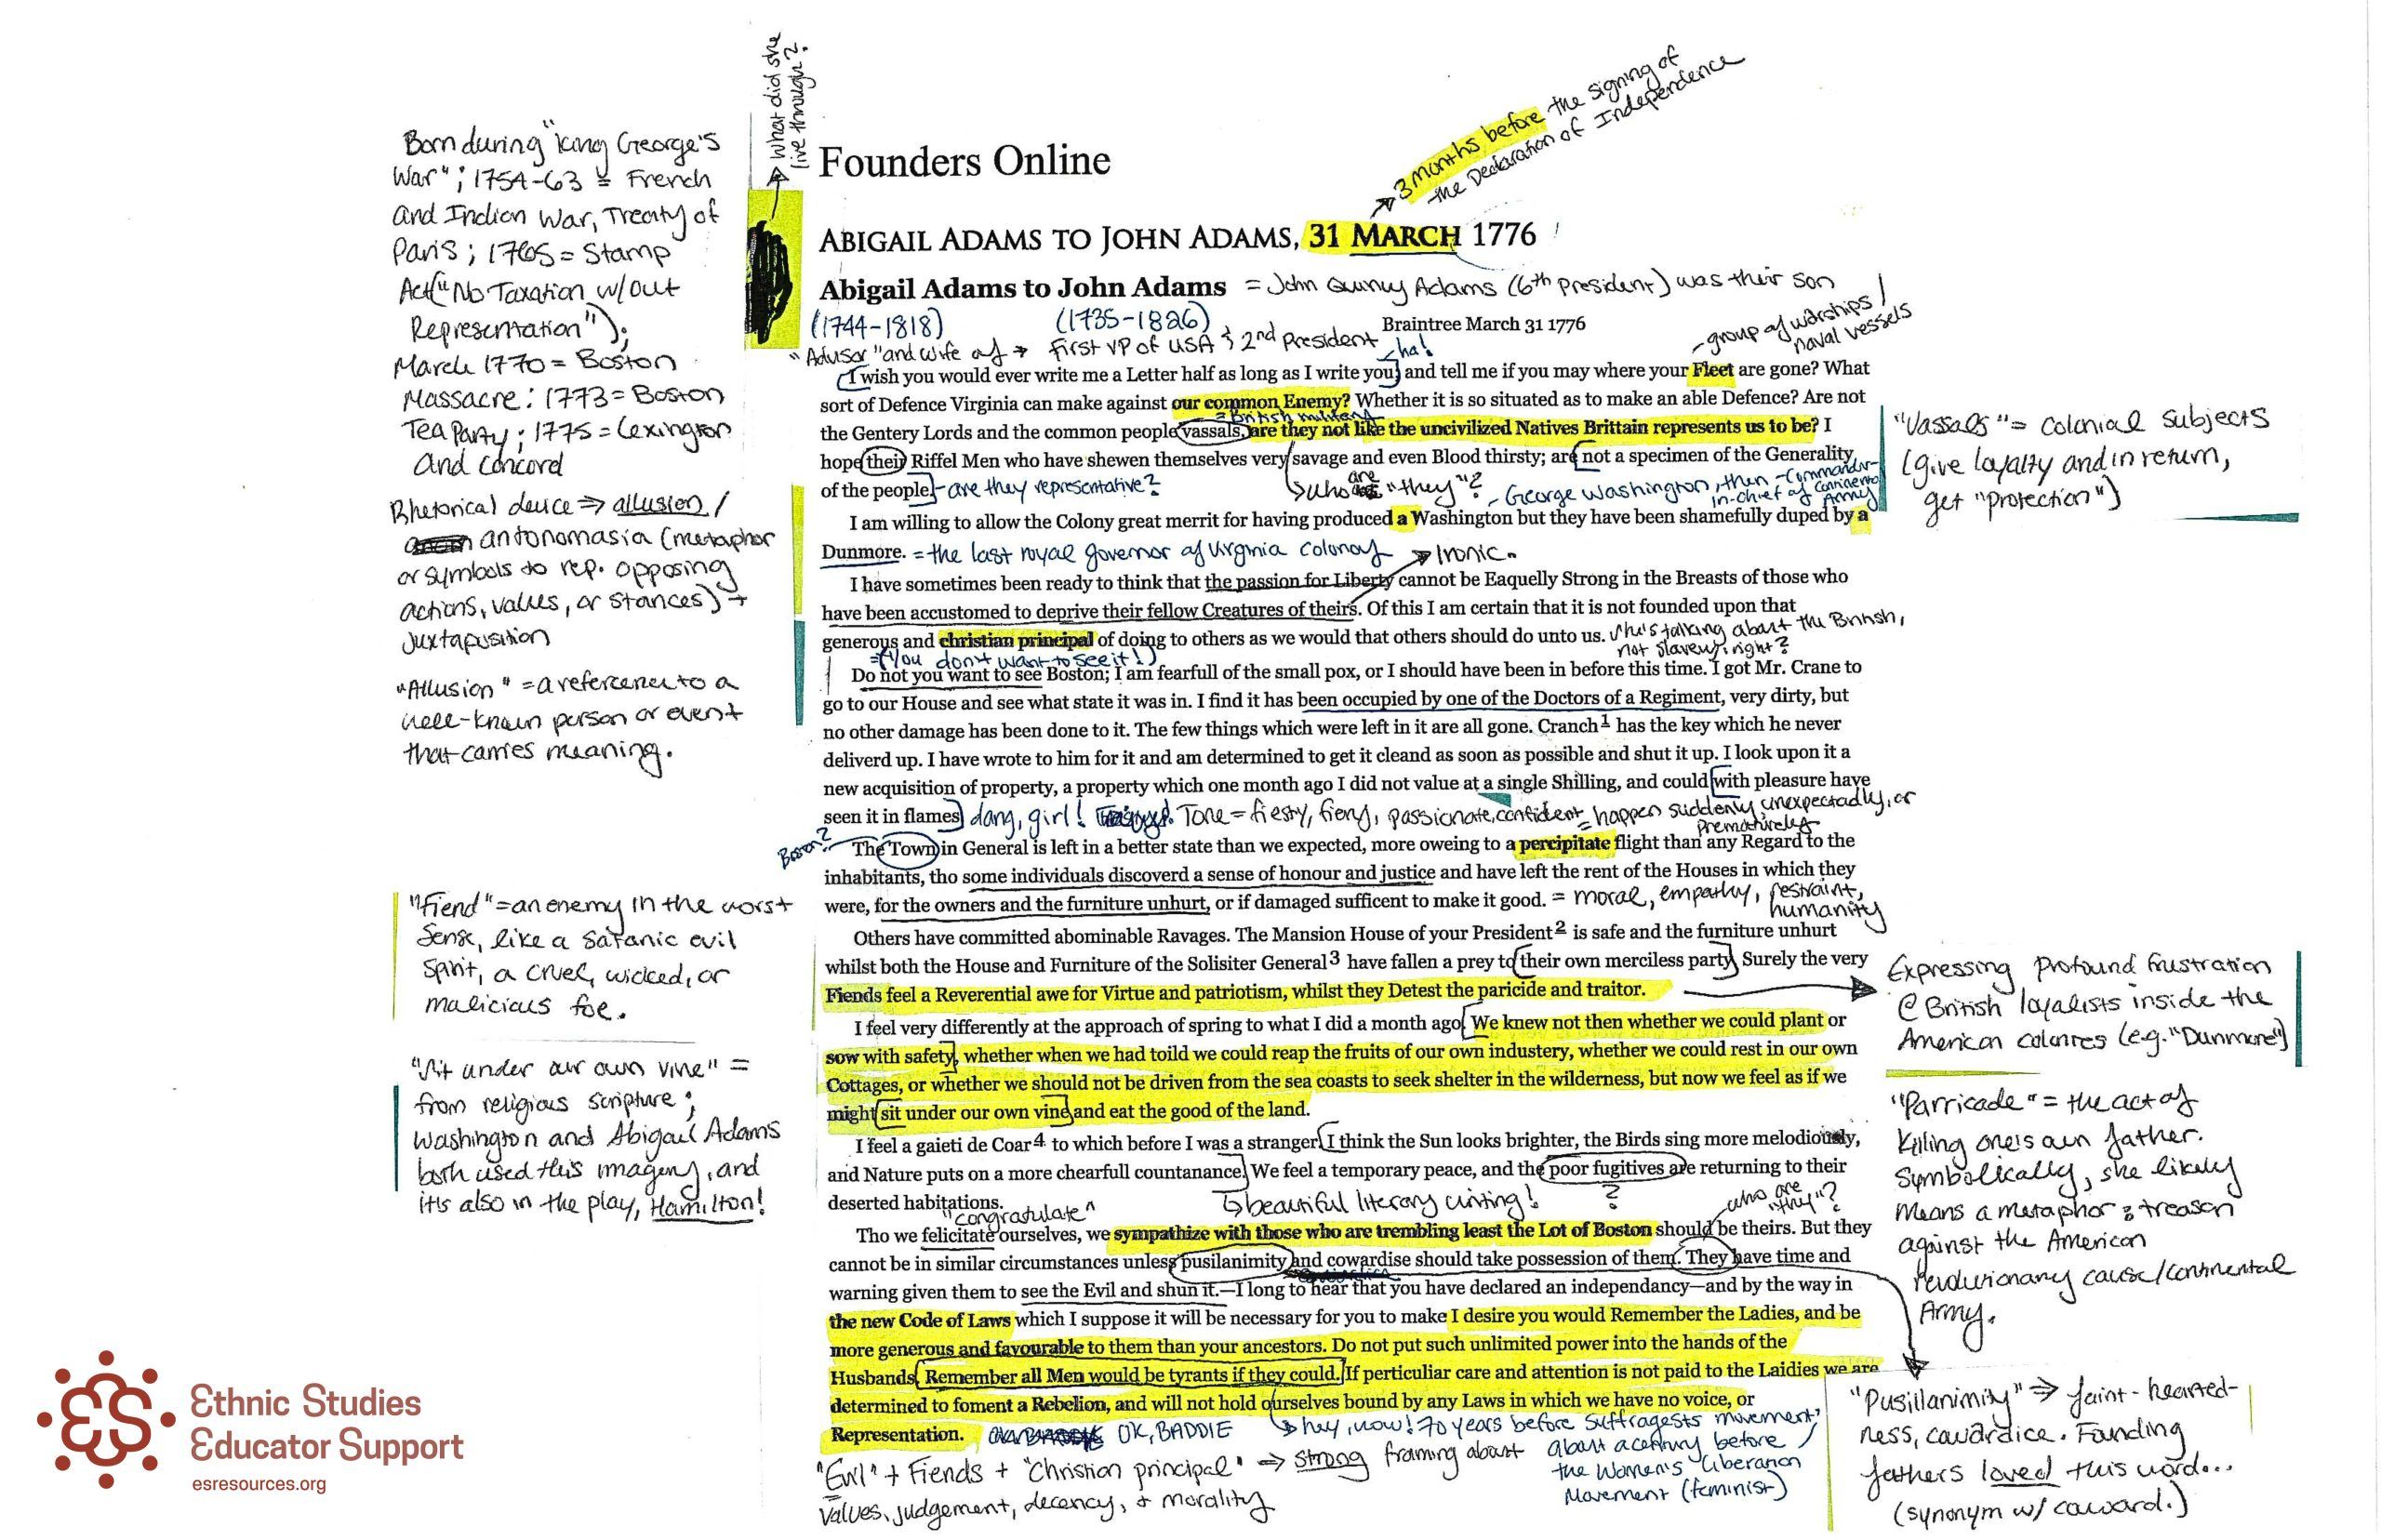 What did she
live through?
3 months before the signing of
the Declaration of Independence
Founders Online
ABIGAIL ADAMS TO JOHN ADAMS, 31 MARCH 1776
Abigail Adams to John Adams = John Quincy Adams (6th president) was their son
(1744-1818) (1735-1826)
Braintree March 31 1776
"Advisor" and wife of → First VP of USA & 2nd President
- group of warships /
naval vessels
ha!
I wish you would ever write me a Letter half as long as I write you; and tell me if you may where your Fleet are gone? What
sort of Defence Virginia can make against our common Enemy? Whether it is so situated as to make an able Defence? Are not
= British military
the Gentery Lords and the common people vassals, are they not like the uncivilized Natives Brittain represents us to be? I
hope their Riffel Men who have shewen themselves very savage and even Blood thirsty; are not a specimen of the Generality
of the people. - are they representative?
→ who are "they"?
- George Washington, then - Commander-
in-chief of Continental
Army
I am willing to allow the Colony great merrit for having produced a Washington but they have been shamefully duped by a
Dunmore. = the last royal governor of Virginia colony
→ Ironic.
I have sometimes been ready to think that the passion for Liberty cannot be Eaquelly Strong in the Breasts of those who
have been accustomed to deprive their fellow Creatures of theirs. Of this I am certain that it is not founded upon that
generous and christian principal of doing to others as we would that others should do unto us.
she's talking about the British,
not slavery, right?
= (You don't want to see it!)
Do not you want to see Boston; I am fearfull of the small pox, or I should have been in before this time. I got Mr. Crane to
go to our House and see what state it was in. I find it has been occupied by one of the Doctors of a Regiment, very dirty, but
no other damage has been done to it. The few things which were left in it are all gone. Cranch1 has the key which he never
deliverd up. I have wrote to him for it and am determined to get it cleand as soon as possible and shut it up. I look upon it a
new acquisition of property, a property which one month ago I did not value at a single Shilling, and could with pleasure have
seen it in flames. dang, girl! Tone = fiesty, fiery, passionate, confident
= happen suddenly, unexpectadly, or
prematurely
Boston?
The Town in General is left in a better state than we expected, more oweing to a percipitate flight than any Regard to the
inhabitants, tho some individuals discoverd a sense of honour and justice and have left the rent of the Houses in which they
were, for the owners and the furniture unhurt, or if damaged sufficent to make it good. = moral, empathy, restraint,
humanity
Others have committed abominable Ravages. The Mansion House of your President2 is safe and the furniture unhurt
whilst both the House and Furniture of the Solisiter General3 have fallen a prey to their own merciless party. Surely the very
Fiends feel a Reverential awe for Virtue and patriotism, whilst they Detest the paricide and traitor.
I feel very differently at the approach of spring to what I did a month ago. We knew not then whether we could plant or
sow with safety, whether when we had toild we could reap the fruits of our own industery, whether we could rest in our own
Cottages, or whether we should not be driven from the sea coasts to seek shelter in the wilderness, but now we feel as if we
might sit under our own vine and eat the good of the land.
I feel a gaieti de Coar4 to which before I was a stranger. I think the Sun looks brighter, the Birds sing more melodiously,
and Nature puts on a more chearfull countanance. We feel a temporary peace, and the poor fugitives are returning to their
deserted habitations.
↳ beautiful literary writing!
?
who are
"they"?
"congratulate"
Tho we felicitate ourselves, we sympathize with those who are trembling least the Lot of Boston should be theirs. But they
cannot be in similar circumstances unless pusilanimity and cowardise should take possession of them. They have time and
warning given them to see the Evil and shun it.—I long to hear that you have declared an independancy—and by the way in
the new Code of Laws which I suppose it will be necessary for you to make I desire you would Remember the Ladies, and be
more generous and favourable to them than your ancestors. Do not put such unlimited power into the hands of the
Husbands. Remember all Men would be tyrants if they could. If perticuliar care and attention is not paid to the Laidies we are
determined to foment a Rebelion, and will not hold ourselves bound by any Laws in which we have no voice, or
Representation. OK, BADDIE
↳ hey, now! 70 years before suffragests movement,
about a century before
the Women's Liberation
Movement (feminist)
"Evil" + Fiends + "Christian principal" ⇒ strong framing about
values, judgement, decency, & morality
Born during "King George's
War"; 1754-63 = French
and Indian War, Treaty of
Paris; 1765 = Stamp
Act ("No Taxation w/out
Representation");
March 1770 = Boston
Massacre; 1773 = Boston
Tea Party; 1775 = Lexington
and Concord
Rhetorical device ⇒ allusion /
antonomasia (metaphor
or symbols to rep. opposing
actions, values, or stances) +
Juxtaposition
"Allusion" = a reference to a
well-known person or event
that carries meaning.
"Fiend" = an enemy in the worst
sense, like a satanic evil
spirit, a cruel, wicked, or
malicious foe.
"Sit under our own vine" =
from religious scripture;
Washington and Abigail Adams
both used this imagery, and
it's also in the play, Hamilton!
"Vassals" = colonial subjects
(give loyalty and in return,
get "protection")
Expressing profound frustration
@ British loyalists inside the
American colonies (e.g. "Dunmore")
"Parricade" = the act of
killing one's own father.
Symbolically, she likely
means a metaphor: treason
against the American
revolutionary cause/continental
Army.
"Pusillanimity" ⇒ faint-hearted-
ness, cowardice. Founding
fathers loved this word...
(synonym w/ coward.)
ES
Ethnic Studies
Educator Support
esresources.org